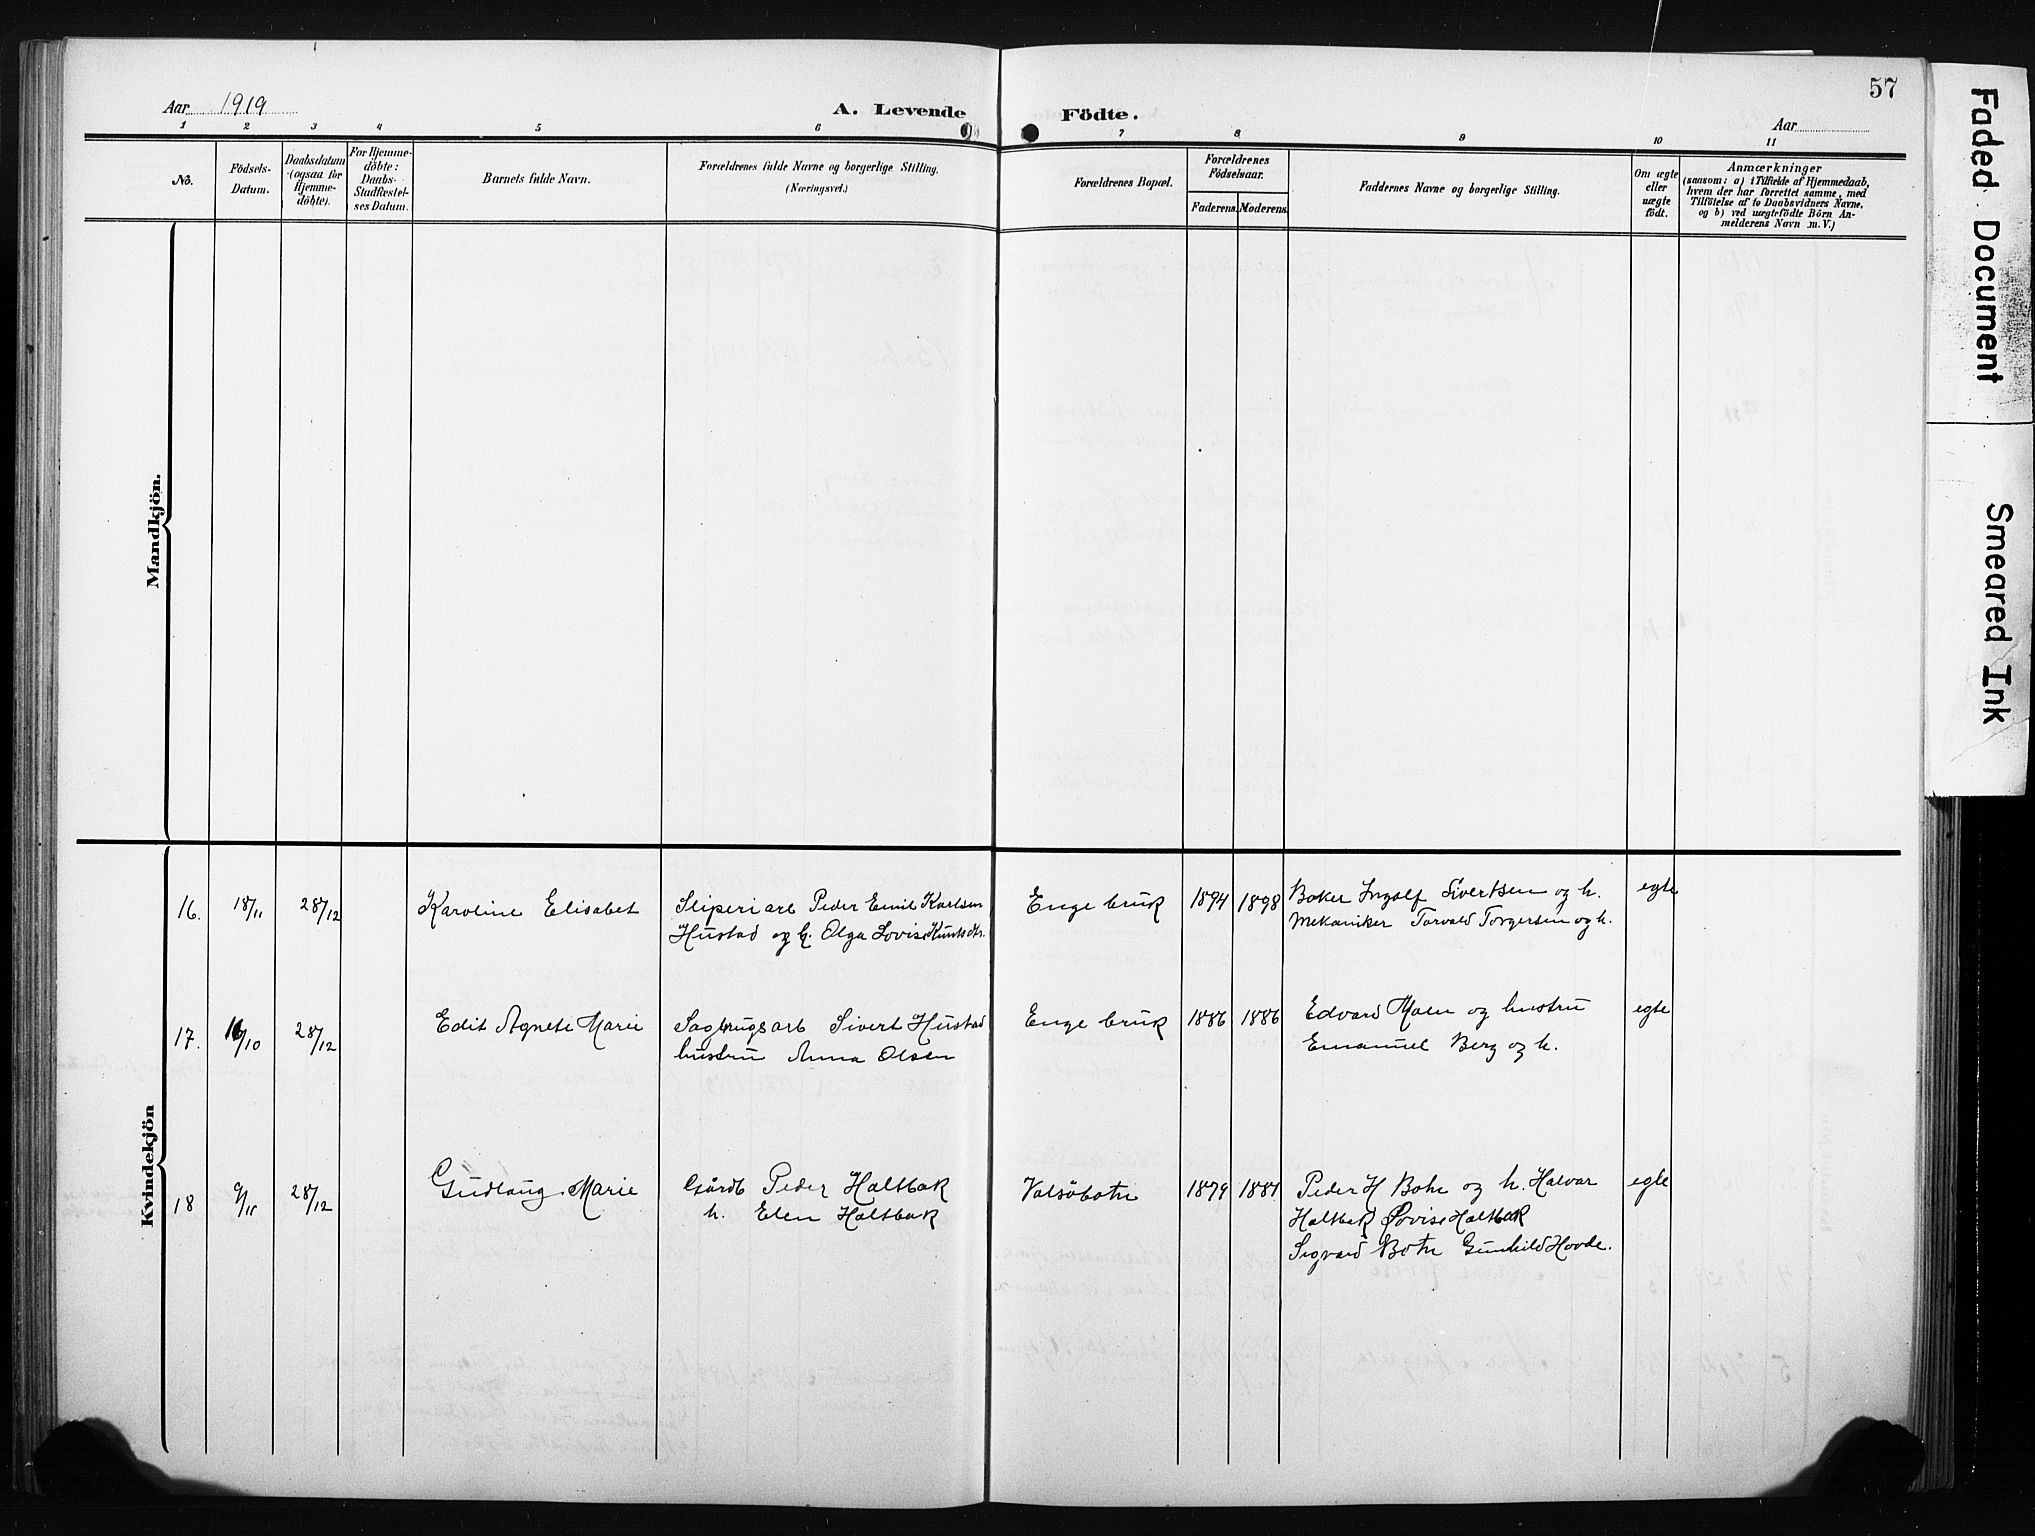 57
Aar 1919
A. Levende Födte.
Aar
1 2 3 4 5 6 7 8 9 10 11
No.
Födsels-
Datum.
Daabsdatum
(ogsaa for
Hjemme-
döbte).
For Hjemme-
döbte:
Daabs-
Stadfæstel-
ses Datum.
Barnets fulde Navn.
Forældrenes fulde Navne og borgerlige Stilling.
(Næringsvei.)
Forældrenes Bopæl.
Forældrenes
Födselsaar.
Faderens. Moderens.
Faddernes Navne og borgerlige Stilling.
Om ægte
eller
uægte
födt.
Anmærkninger
(saasom: a) i Tilfælde af Hjemmedaab,
hvem der har forrettet samme, med
Tilföielse af to Daabsvidners Navne,
og b) ved uægtefödte Börn An-
melderens Navn m. V.)
Mandkjön.
Kvindekjön
16. 18/11 28/12 Karoline Elisabet Sliperiarb Peder Emil Karlsen Enge bruk 1894 1898 Baker Ingolf Sivertsen og h. egte
Hustad og h. Olga Lovise Knutsdtr. Mekaniker Torvald Torgersen og h.
17. 16/10 28/12 Edit Agnete Marie Sagbrugsarb Sivert Hustad Enge bruk 1886 1886 Edvard Moen og hustru egte
hustru Anna Olsen Emanuel Berg og h.
18 9/11 28/12 Gudlaug Marie Gårdb Peder Haltbak Valsöbotn 1879 1881 Peder H Botn og h. Halvar egte
h. Elen Haltbak Haltbak Lovise Haltbak
Sigvard Botn Gunhild Hovde.
Faded Document
Smeared Ink